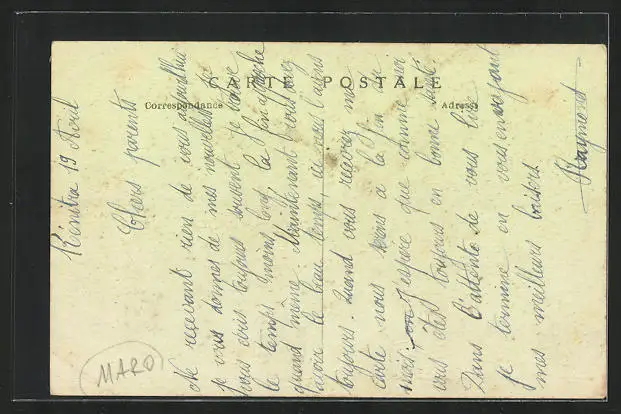 CARTE POSTALE
Correspondance
Adresse
Kénitra 19 Avril
Chers parents
Ne recevant rien de vous aujourd'hui
je vous donnes de mes nouvelles
vous vois toujours souvent. Je trouve
le temps moins long, la fin approche
quand même. Maintenant vous
avoir le beau temps, ici nous l'avons
toujours. Quand vous recevrez ma
carte nous serons à la fin du
mois. J'espère que comme moi
vous êtes toujours en bonne santé.
Dans l'attente de vous lire
je termine en vous envoyant
mes meilleurs baisers
Raymond
MARO